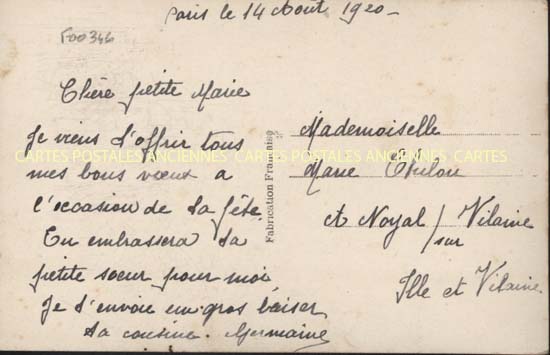 Paris le 14 Août 1920-
F00346
Chère petite Marie
Je viens t'offrir tous
mes bons vœux a
l'occasion de ta fête.
Tu embrassera ta
petite sœur pour moi
Je t'envoie un gros baiser
ta cousine. Germaine
Fabrication Française
Mademoiselle
Marie
At Noyal / Vilaine
sur
Ille et Vilaine
CARTES POSTALES ANCIENNES CARTES POSTALES ANCIENNES CARTES